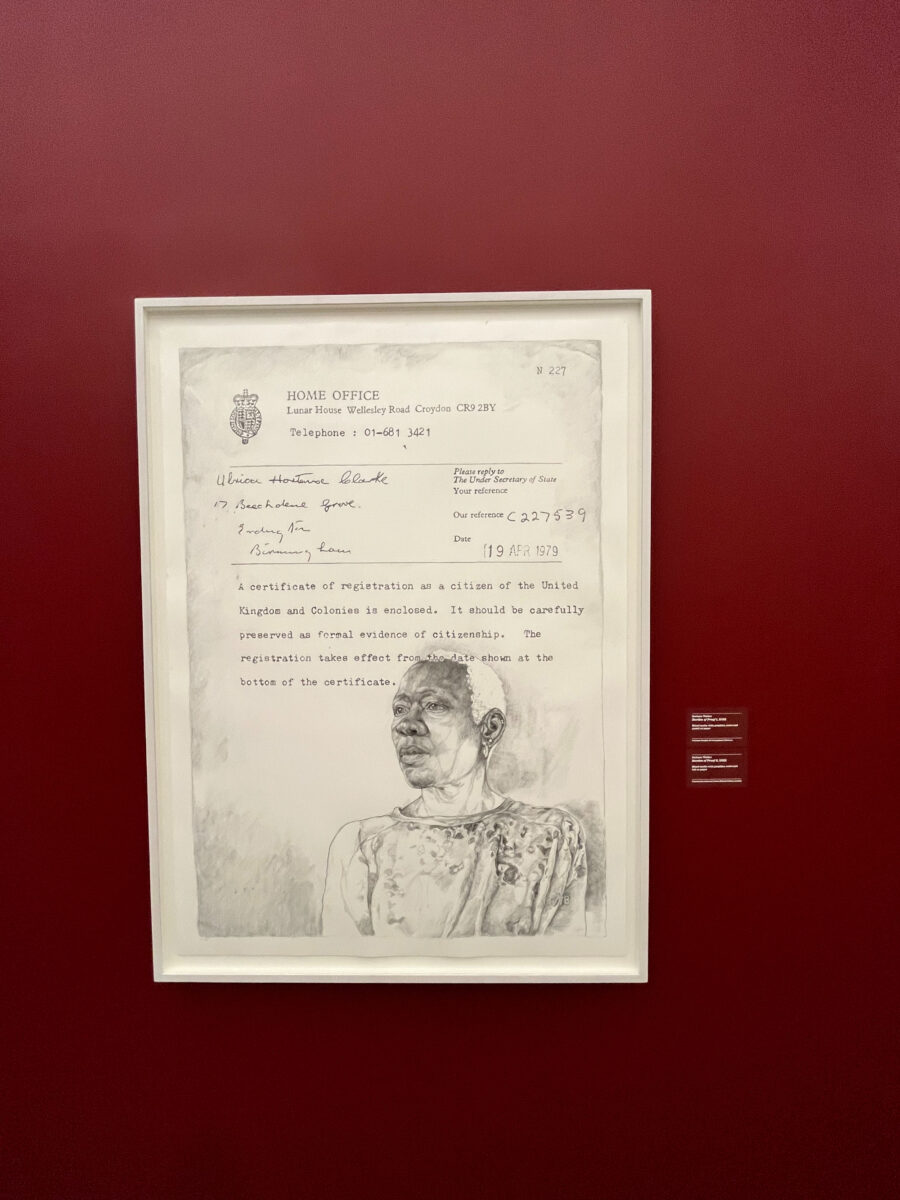 N 227
HOME OFFICE
Lunar House Wellesley Road Croydon CR9 2BY
Telephone : 01-681 3421
Hortense Clarke
17 Beechdene Grove.
Erdington
Birmingham
Please reply to
The Under Secretary of State
Your reference
Our reference C227539
Date
19 APR 1979
A certificate of registration as a citizen of the United
Kingdom and Colonies is enclosed. It should be carefully
preserved as formal evidence of citizenship. The
registration takes effect from the date shown at the
bottom of the certificate.
Burden of Proof
Burden of Proof